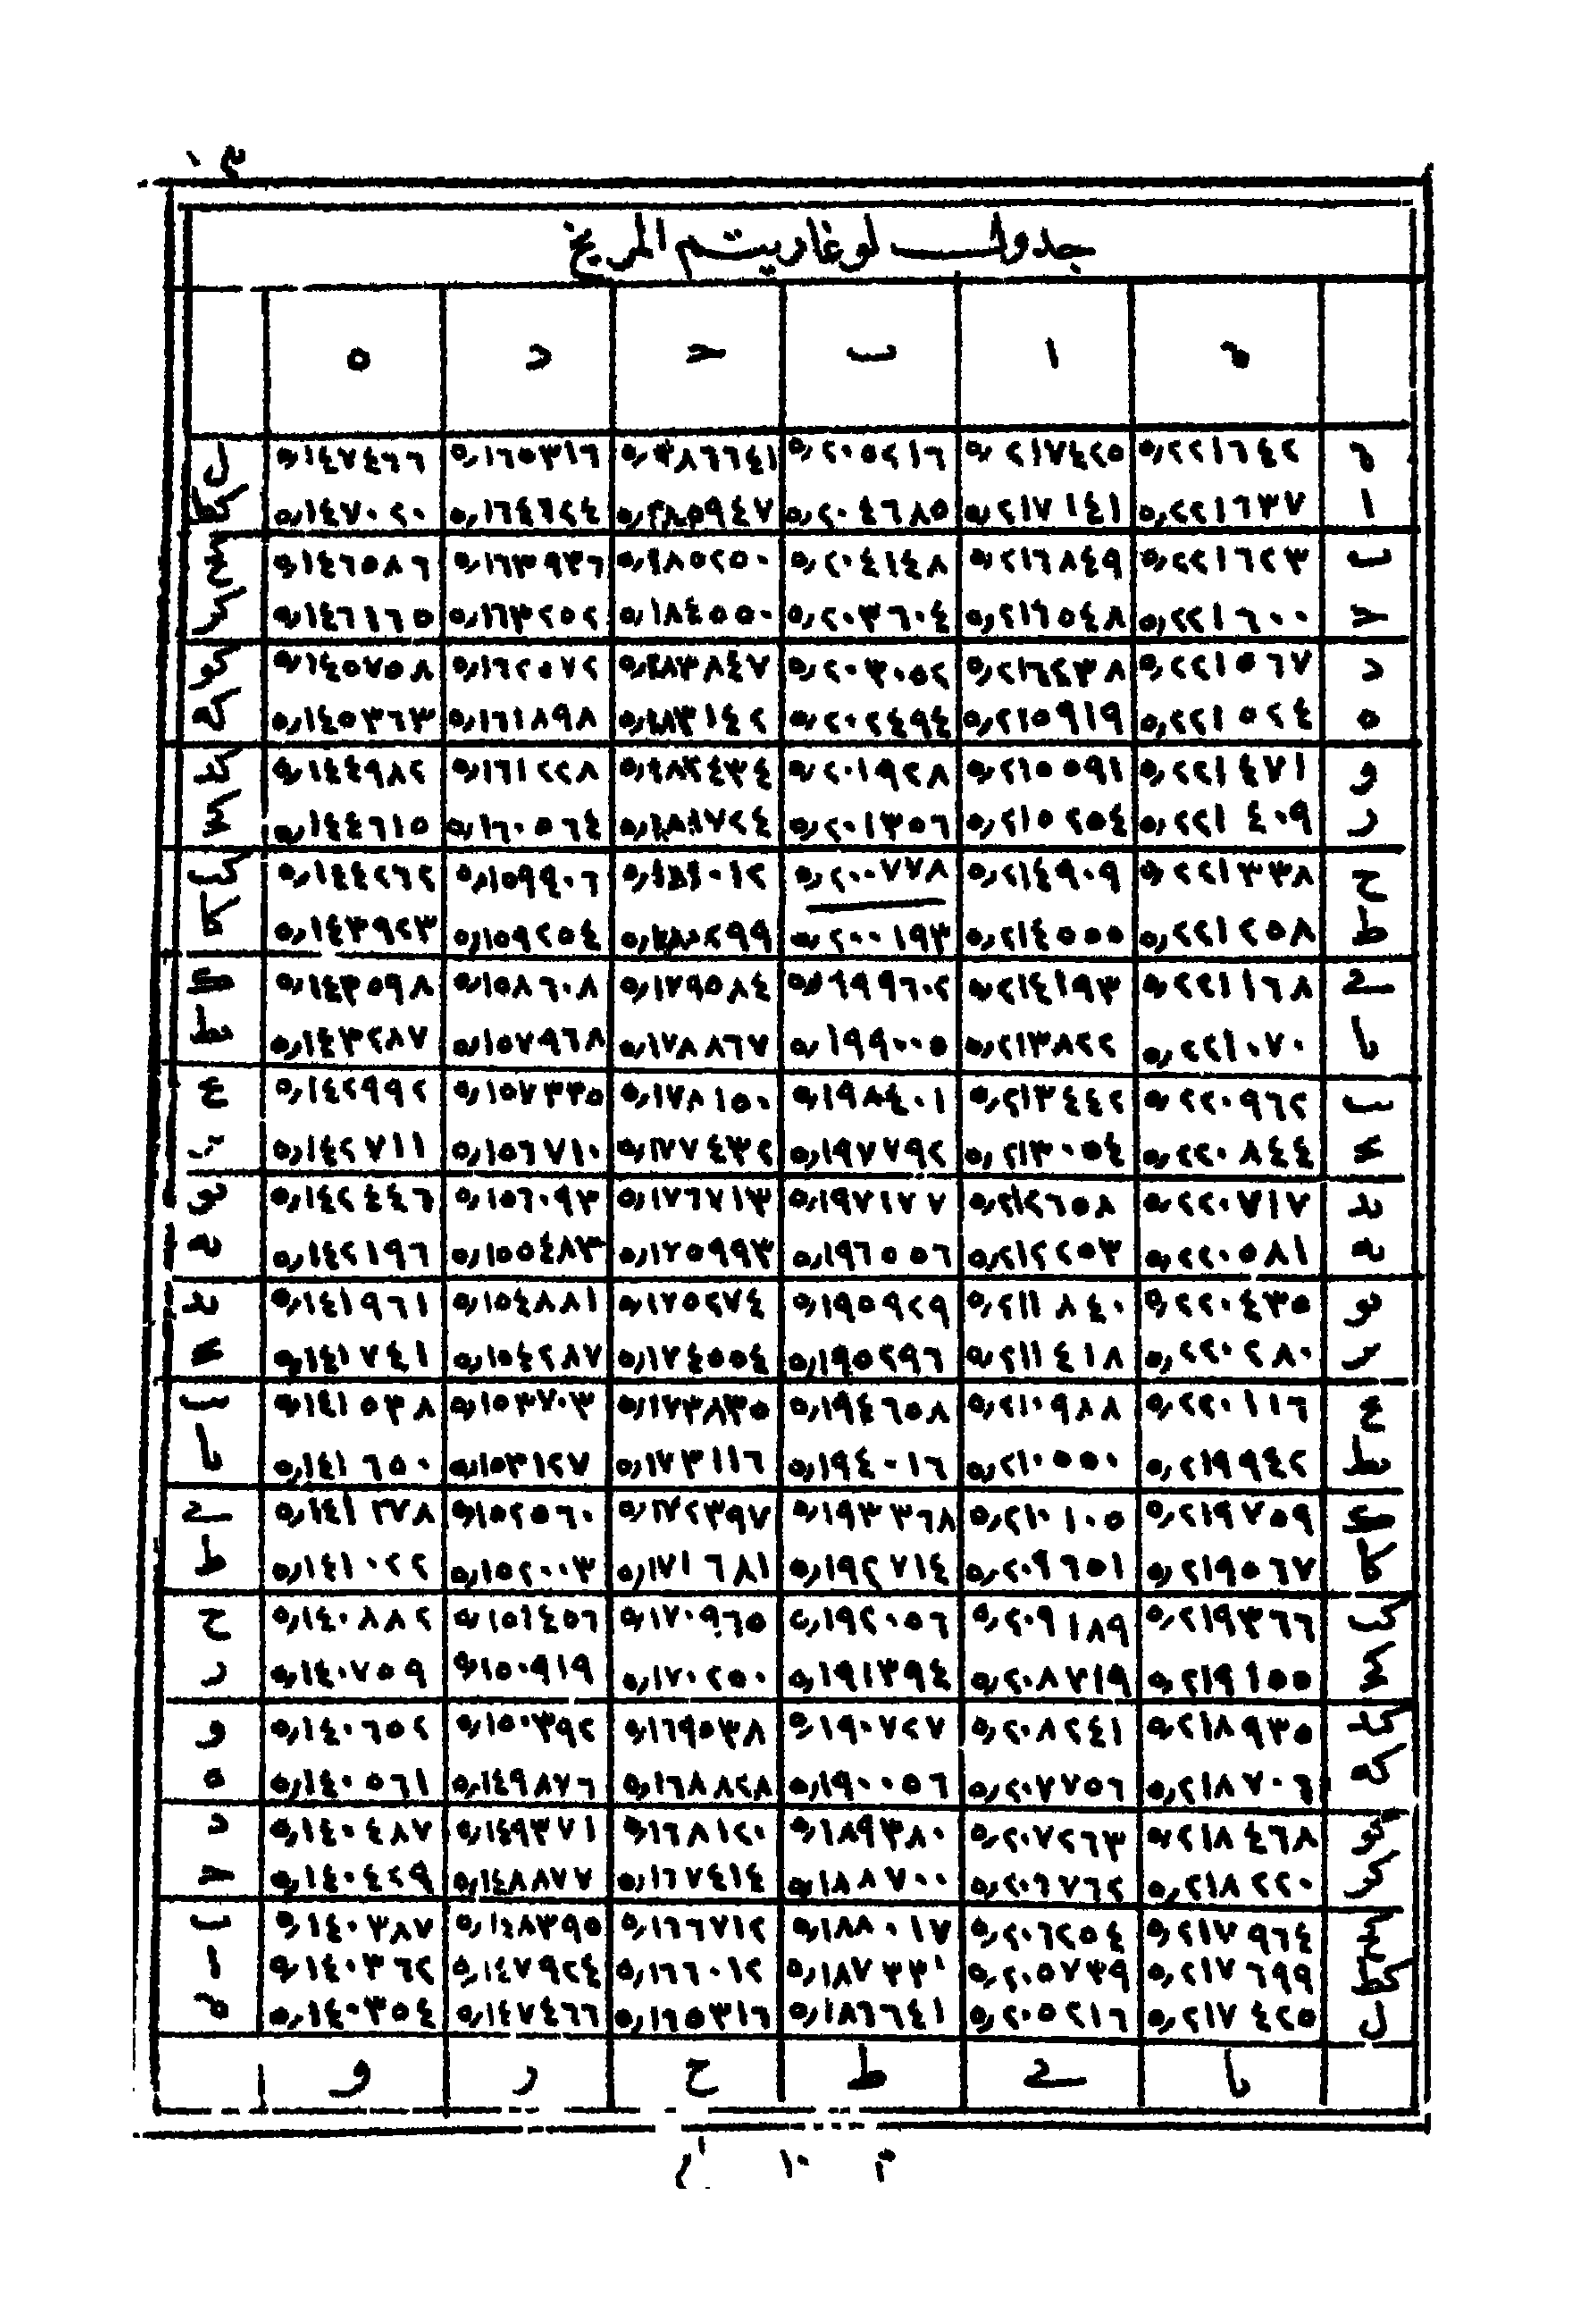 ١٠٣
جدول لوغاريتم المريخ
ة ا ب حـ د ه
ة ٥,٢٢١٦٤٢ ٥,٢١٧٤٢٥ ٥,٢٠٥٢١٦ ٥,١٨٦٦٤١ ٥,١٦٥٣١٦ ٥,١٤٧٤٦٦ ل
ا ٥,٢٢١٦٣٧ ٥,٢١٧١٤١ ٥,٢٠٤٦٨٥ ٥,١٨٥٩٤٧ ٥,١٦٤٦٢٤ ٥,١٤٧٠٢٠ كط
ب ٥,٢٢١٦٢٣ ٥,٢١٦٨٤٩ ٥,٢٠٤١٤٨ ٥,١٨٥٢٥٠ ٥,١٦٣٩٣٦ ٥,١٤٦٥٨٦ كح
حـ ٥,٢٢١٦٠٠ ٥,٢١٦٥٤٨ ٥,٢٠٣٦٠٤ ٥,١٨٤٥٥٠ ٥,١٦٣٢٥٢ ٥,١٤٦١٦٥ كر
د ٥,٢٢١٥٦٧ ٥,٢١٦٢٣٨ ٥,٢٠٣٠٥٢ ٥,١٨٣٨٤٧ ٥,١٦٢٥٧٢ ٥,١٤٥٧٥٨ كو
ه ٥,٢٢١٥٢٤ ٥,٢١٥٩١٩ ٥,٢٠٢٤٩٤ ٥,١٨٣١٤٢ ٥,١٦١٨٩٨ ٥,١٤٥٣٦٣ كه
و ٥,٢٢١٤٧١ ٥,٢١٥٥٩١ ٥,٢٠١٩٢٨ ٥,١٨٢٤٣٤ ٥,١٦١٢٢٨ ٥,١٤٤٩٨٢ كد
ر ٥,٢٢١٤٠٩ ٥,٢١٥٢٥٤ ٥,٢٠١٣٥٦ ٥,١٨١٧٢٤ ٥,١٦٠٥٦٤ ٥,١٤٤٦١٥ كحـ
ح ٥,٢٢١٣٣٨ ٥,٢١٤٩٠٩ ٥,٢٠٠٧٧٨ ٥,١٨١٠١٢ ٥,١٥٩٩٠٦ ٥,١٤٤٢٦٢ كب
ط ٥,٢٢١٢٥٨ ٥,٢١٤٥٥٥ ٥,٢٠٠١٩٣ ٥,١٨٠٢٩٩ ٥,١٥٩٢٥٤ ٥,١٤٣٩٢٣ كا
ے ٥,٢٢١١٦٨ ٥,٢١٤١٩٣ ٥,١٩٩٦٠٢ ٥,١٧٩٥٨٤ ٥,١٥٨٦٠٨ ٥,١٤٣٥٩٨ ك
يا ٥,٢٢١٠٧٠ ٥,٢١٣٨٢٢ ٥,١٩٩٠٠٥ ٥,١٧٨٨٦٧ ٥,١٥٧٩٦٨ ٥,١٤٣٢٨٧ يط
يب ٥,٢٢٠٩٦٢ ٥,٢١٣٤٤٢ ٥,١٩٨٤٠١ ٥,١٧٨١٥٠ ٥,١٥٧٣٣٥ ٥,١٤٢٩٩٢ يح
يحـ ٥,٢٢٠٨٤٤ ٥,٢١٣٠٥٤ ٥,١٩٧٧٩٢ ٥,١٧٧٤٣٢ ٥,١٥٦٧١٠ ٥,١٤٢٧١١ ير
يد ٥,٢٢٠٧١٧ ٥,٢١٢٦٥٨ ٥,١٩٧١٧٧ ٥,١٧٦٧١٣ ٥,١٥٦٠٩٣ ٥,١٤٢٤٤٦ يو
يه ٥,٢٢٠٥٨١ ٥,٢١٢٢٥٣ ٥,١٩٦٥٥٦ ٥,١٧٥٩٩٣ ٥,١٥٥٤٨٣ ٥,١٤٢١٩٦ يه
يو ٥,٢٢٠٤٣٥ ٥,٢١١٨٤٠ ٥,١٩٥٩٢٩ ٥,١٧٥٢٧٤ ٥,١٥٤٨٨١ ٥,١٤١٩٦١ يد
ير ٥,٢٢٠٢٨٠ ٥,٢١١٤١٨ ٥,١٩٥٢٩٦ ٥,١٧٤٥٥٤ ٥,١٥٤٢٨٧ ٥,١٤١٧٤١ يحـ
يح ٥,٢٢٠١١٦ ٥,٢١٠٩٨٨ ٥,١٩٤٦٥٨ ٥,١٧٣٨٣٥ ٥,١٥٣٧٠٣ ٥,١٤١٥٣٨ يب
يط ٥,٢١٩٩٤٢ ٥,٢١٠٥٥٠ ٥,١٩٤٠١٦ ٥,١٧٣١١٦ ٥,١٥٣١٢٧ ٥,١٤١٦٥٠ يا
ك ٥,٢١٩٧٥٩ ٥,٢١٠١٠٥ ٥,١٩٣٣٦٨ ٥,١٧٢٣٩٧ ٥,١٥٢٥٦٠ ٥,١٤١٢٧٨ ے
كا ٥,٢١٩٥٦٧ ٥,٢٠٩٦٥١ ٥,١٩٢٧١٤ ٥,١٧١٦٨١ ٥,١٥٢٠٠٣ ٥,١٤١٠٢٢ ط
كب ٥,٢١٩٣٦٦ ٥,٢٠٩١٨٩ ٥,١٩٢٠٥٦ ٥,١٧٠٩٦٥ ٥,١٥١٤٥٦ ٥,١٤٠٨٨٢ ح
كحـ ٥,٢١٩١٥٥ ٥,٢٠٨٧١٩ ٥,١٩١٣٩٤ ٥,١٧٠٢٥٠ ٥,١٥٠٩١٩ ٥,١٤٠٧٥٩ ر
كد ٥,٢١٨٩٣٥ ٥,٢٠٨٢٤١ ٥,١٩٠٧٢٧ ٥,١٦٩٥٣٨ ٥,١٥٠٣٩٢ ٥,١٤٠٦٥٢ و
كه ٥,٢١٨٧٠٦ ٥,٢٠٧٧٥٦ ٥,١٩٠٠٥٦ ٥,١٦٨٨٢٨ ٥,١٤٩٨٧٦ ٥,١٤٠٥٦١ ه
كو ٥,٢١٨٤٦٨ ٥,٢٠٧٢٦٣ ٥,١٨٩٣٨٠ ٥,١٦٨١٢٠ ٥,١٤٩٣٧١ ٥,١٤٠٤٨٧ د
كر ٥,٢١٨٢٢٠ ٥,٢٠٦٧٦٢ ٥,١٨٨٧٠٠ ٥,١٦٧٤١٤ ٥,١٤٨٨٧٧ ٥,١٤٠٤٢٩ حـ
كح ٥,٢١٧٩٦٤ ٥,٢٠٦٢٥٤ ٥,١٨٨٠١٧ ٥,١٦٦٧١٢ ٥,١٤٨٣٩٥ ٥,١٤٠٣٨٧ ب
كط ٥,٢١٧٦٩٩ ٥,٢٠٥٧٣٩ ٥,١٨٧٣٣١ ٥,١٦٦٠١٢ ٥,١٤٧٩٢٤ ٥,١٤٠٣٦٢ ا
ل ٥,٢١٧٤٢٥ ٥,٢٠٥٢١٦ ٥,١٨٦٦٤١ ٥,١٦٥٣١٦ ٥,١٤٧٤٦٦ ٥,١٤٠٣٥٤ ة
يا ے ط ح ر و